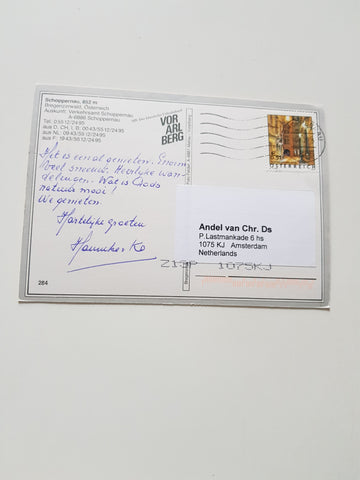 Schoppernau, 852 m
Bregenzerwald, Österreich
Auskunft: Verkehrsamt Schoppernau
A-6886 Schoppernau
Tel. 05512/2495
aus D, CH, I, B: 0043/5512/2495
aus NL: 0943/5512/2495
aus F: 1943/5512/2495
VOR
ARL
BERG
ÖSTERREICH
Het is eenal genieten. Enorm
veel sneeuw. Heerlijke wan
delingen. Wat is Gods
natuur mooi!
We genieten.
Hartelijke groeten
Hanneke Ko
Andel van Chr. Ds
P.Lastmankade 6 hs
1075 KJ Amsterdam
Netherlands
1075KJ
284